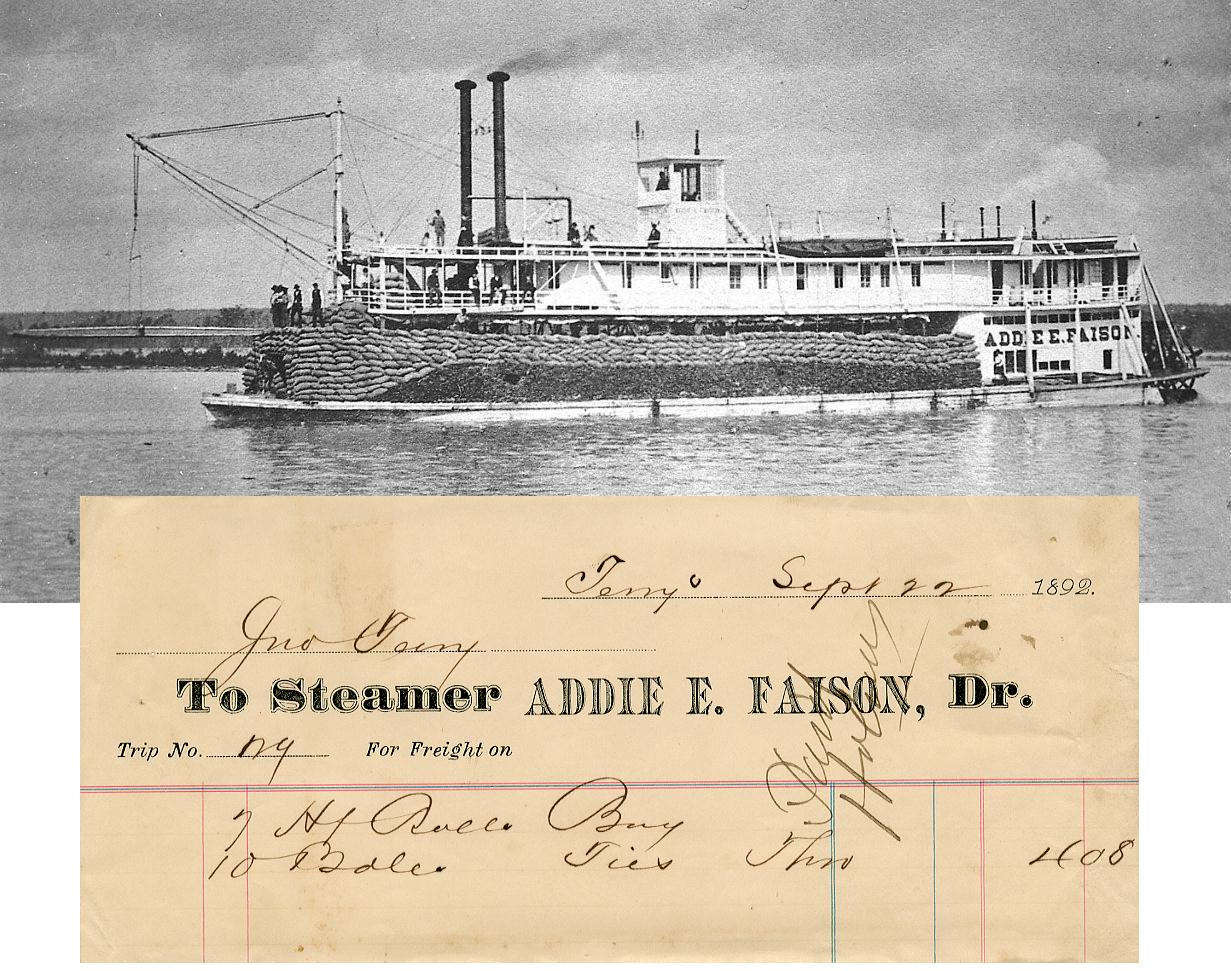 ADDIE E. FAISON
Sept 22 1892.
Jno
To Steamer ADDIE E. FAISON, Dr.
Trip No. For Freight on
7 Hf Rolls Bag
10 Bdls Ties Thro 408